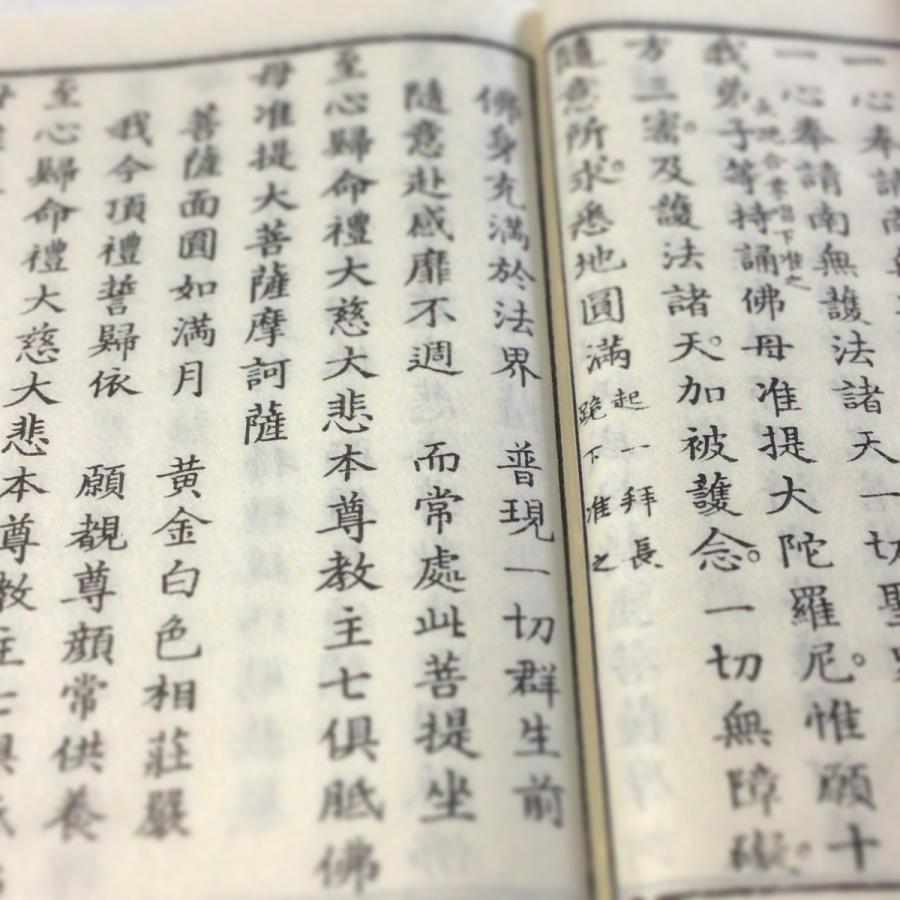 一心奉請南無
一心奉請南無護法諸天一切聖
下准之
我弟子等持誦佛母准提大陀羅尼。惟願十
方三密。及護法諸天。加被護念。一切無障礙。
隨意所求。悉地圓滿
起一拜長
跪下准之
佛身充滿於法界 普現一切群生前
隨意赴感靡不週 而常處此菩提坐
至心歸命禮大慈大悲本尊教主七俱胝佛
母准提大菩薩摩訶薩
菩薩面圓如滿月 黃金白色相莊嚴
我今頂禮誓歸依 願覩尊顏常供養
至心歸命禮大慈大悲本尊教主七俱胝
母